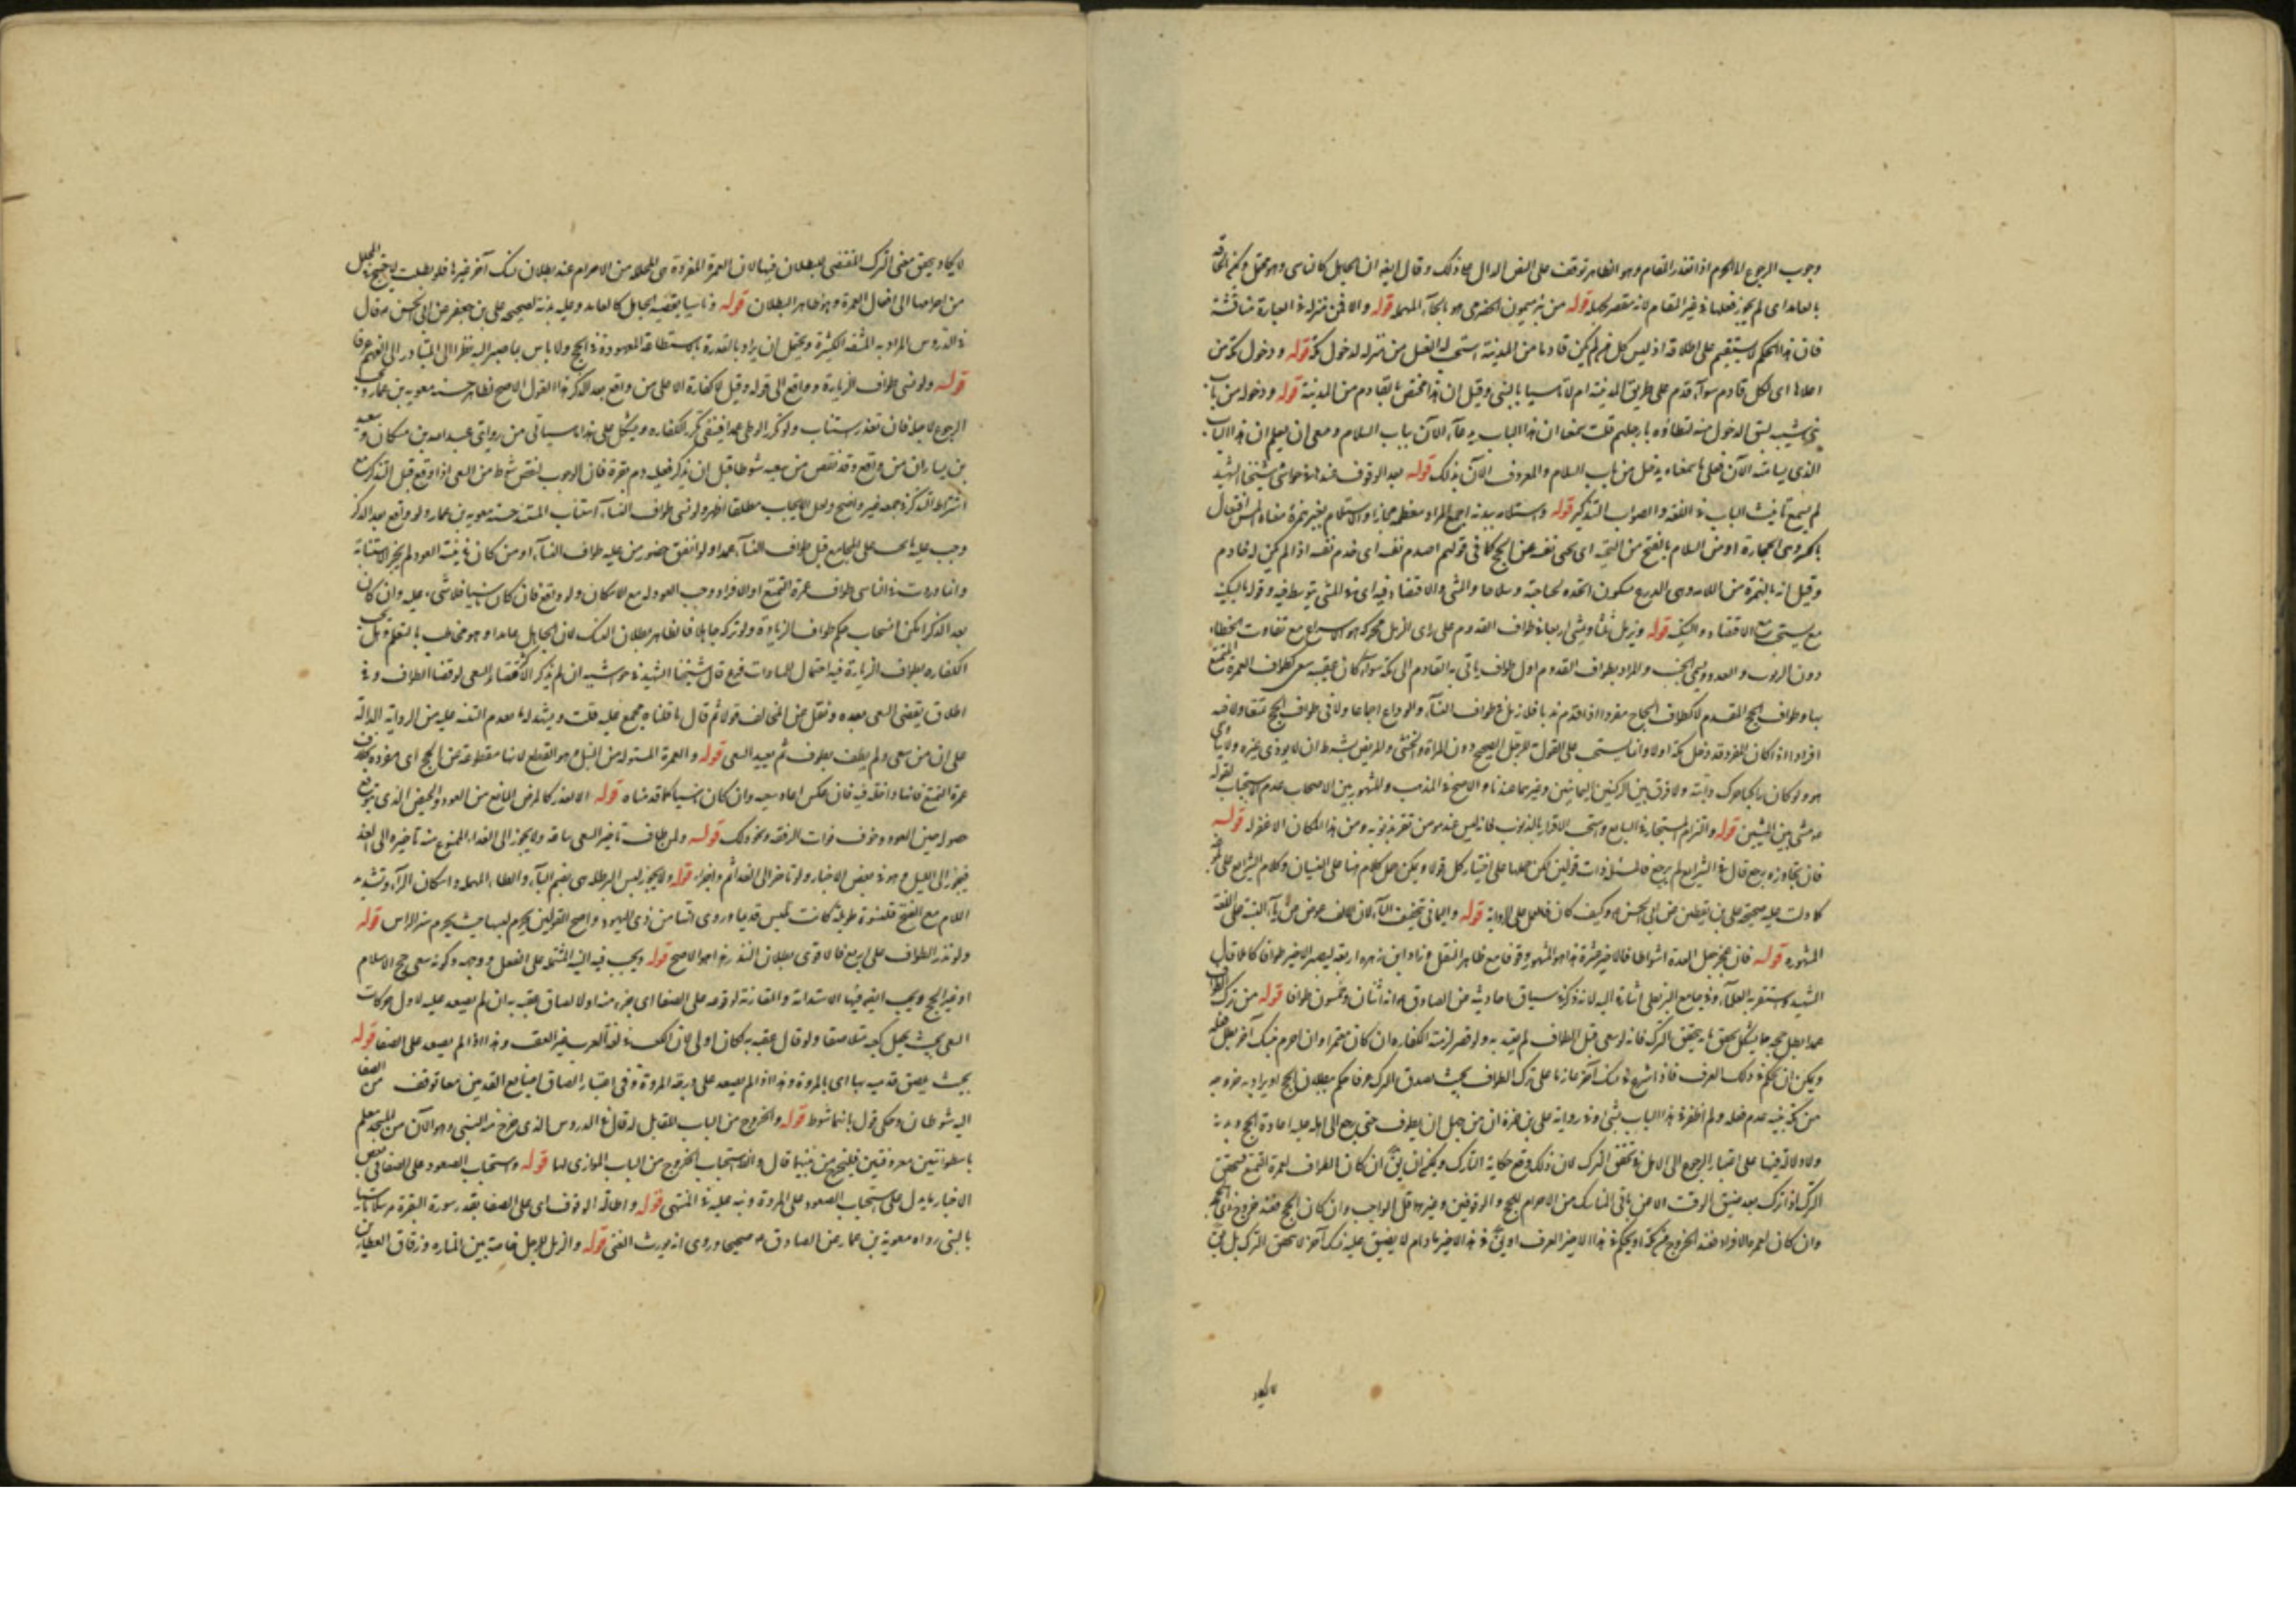 وجوب الرجوع الى الحرم اذا تعذر المقام وهو الظاهر توقف على النص الدال على ذلك وقال ايضا ان الجاهل كالناسي وهو محتمل ويمكن الحاقه
بالعامد اى لم يجز فعلها فى غير المقام لانه مقصر بجهله قوله من بئر ميمون الحضرمى هو بالحاء المهملة قوله والا فمن منزله فى العبارة مناقشة
فان هذا الحكم لا يستقيم على اطلاقه اذ ليس كل من لم يكن قادما من المدينة استحب له الغسل من منزله لدخول مكة قوله ودخول مكة من
اعلاها اى لكل قادم سواء قدم على طريق المدينة ام لا تاسيا بالنبى وقيل ان هذا مختص بالقادم من المدينة قوله ودخوله من باب
بنى شيبة لدخول منه لتطاوه بارجلهم قلت سمعنا ان هذا الباب يدعى الآن بباب السلام ومعنى ان يعلم ان هذا الباب
الذى يسامته الآن فعلى ما سمعناه يدخل من باب السلام والمعروف الآن بذلك قوله بعد الوقوف عنده حواشى شيخنا الشهيد
لم يسمع تانيث الباب فى الفقه والصواب التذكير قوله واستلامه ببدنه اجمع المراد معظمه مجازا والاستلام بغير همزة معناه المس افتعال
وهى الحجارة او من السلام بالفتح من التحية اى يحيى نفسه عن الحجر كما فى قولهم اخدم نفسه اى خدم نفسه اذا لم يكن له خادم
وقيل انه بالهمزة من اللامة وهى الدرع والمشى والاقتصاد فيه اى فى المشى يتوسط فيه وقوله بالسكينة
مع الاقتصاد والسكينة قوله ويرمل ثلثا ويمشى اربعا فى طواف القدوم على راى الرمل محركة هو الاسراع مع تقارب الخطا
دون الوثوب والعدو ويسمى الخبب والمراد بطواف القدوم اول طواف ياتى به القادم الى مكة سواء كان عقيبه سعى كطواف العمرة المتمتع
بها وطواف الحج المقدم لا كطواف الحاج مفردا اذا قدم ندبا فلا رمل فى طواف النساء والوداع اجماعا ولا فى طواف الحج
افرادا اذا كان المفرد قد دخل مكة اولا وانما يستحب على القول به للرجل الصحيح دون المراة والخنثى والمريض بشرط ان لا يوذى غيره ولا يتاذى
هو ولو كان راكبا حرك دابته ولا فرق بين الركنين اليمانيين وغيرهما عندنا والاصح فى المذهب والمشهور بين الاصحاب عدم الاستحباب لقوله
مشى بين المشيين قوله والتزام المستجار فى السابع ويستحب الاقرار بالذنوب فانه ليس عبد مؤمن تقر بذنوبه ومن هذا المكان الا غفر له قوله
فان تجاوزه رجع قال فى الشرايع لم يرجع فالمسئلة ذات قولين لكن حملها على اختيار كل قولا ويمكن حمل كلام هنا على النسيان وكلام الشرايع على
كما دلت عليه صحيحة على بن يقطين عن ابى الحسن وكيف كان فالعمل على الرواية قوله واليمانى تخفيف الياء لان الالف عوض من ياء النسبة على اللغة
المشهورة قوله فان عجز جعل العدة اشواطا فالاخير عشرة هذا هو المشهور وقوفا مع ظاهر النقل وزاد ابن زهرة اربعة ليصير الاخير طوافا كاملا قال
الشهيد وفى جامع البزنطى اشارة اليه لانه ذكر فى سياق احاديثه عن الصادق انه اثنان وخمسون طوافا قوله من ترك الطواف
عمدا بطل حجه ما يشكل تحقق ما به يتحقق الترك فانه لو سعى قبل الطواف لم يعتد به ولو قصر لزمته الكفارة ان كان معتمرا وان احرم بنسك آخر بطل فعله
ويمكن ان يحكم فى ذلك العرف فاذا شرع فى نسك آخر عازما على ترك الطواف بحيث يصدق الترك عرفا حكم ببطلان الحج او يراد به خروجه
من مكة بنية عدم فعله ولم اظفر فى هذا الباب بشىء وفى رواية على بن حمزة ان من جهل ان يطوف حتى رجع الى اهله عليه اعادة الحج وبدنة
ولا دلالة فيها على اعتبار الرجوع الى الاهل فى تحقق الترك لان ذلك وقع حكاية الترك ويمكن ان يق ان كان الطواف لعمرة التمتع يتحقق
الترك اذا ترك بعد ضيق الوقت الا عن باقى المناسك من الاحرام للحج والوقوفين وغيرهما قل الواجب وان كان للحج فعند خروج ذى الحجة
وان كان لعمرة الافراد فعند الخروج من مكة ويحكم فى هذا الاخير العرف او يق فى هذا الاخير ما دام لا يضيق عليه نسك آخر لا يتحقق الترك بل
لا يكاد
لا يكاد يتحقق معنى الترك المقتضى للبطلان فيها لان العمرة المفردة هى المحللة من الاحرام عند بطلان نسك آخر غيرها فلو بطلت لاحتيج فى المحلل
من احرامها الى افعال العمرة وهو ظاهر البطلان قوله وناسيا يقضيه الجاهل كالعامد وعليه بدنة لصحيحة على بن جعفر عن ابى الحسن قال
فى الدروس المراد به المشقة الكثيرة ويحتمل ان يراد بالقدرة استطاعة المعهودة فى الحج ولا باس بالمصير اليه نظرا الى المتبادر الى الفهم عرفا
قوله ولو نسى طواف الزيارة وواقع الى قوله وقيل لا كفارة الا على من واقع بعد الذكر هذا القول الاصح لظاهر حسنة معوية بن عمار ويجب
الرجوع لاجله فان تعذر استناب ولو كرر الوطى عمدا فيقتضى تكرر الكفارة ويشكل على هذا ما سياتى من روايتى عبد الله بن مسكان وسعيد
بن يسار ان من واقع وقد نقص من سعيه شوطا قبل ان يذكر فعليه دم بقرة فان الوجوب لنقص شوط من السعى اذا وقع قبل التذكر مع
اشتراط التذكر فى جميعه غير واضح ولعل الايجاب مطلقا اظهر ولو نسى طواف النساء استناب المستند حسنة معوية بن عمار ولو واقع بعد الذكر
وجب عليه ما يجب على المجامع قبل طواف النساء عمدا ولو اتفق حضور من عليه طواف النساء او من كان فى نيته العود لم يجز الاستنابة
واما وردت فى الناسى طواف عمرة التمتع او الافراد وجب العود له مع الامكان ولو واقع فان كان ناسيا فلا شىء عليه وان كان
بعد الذكر امكن انسحاب حكم طواف الزيارة ولو تركه جاهلا فالظاهر بطلان النسك لان الجاهل عامدا وهو مخاطب بالتعلم وهل تجب
الكفارة بطواف الزيارة فيه احتمال المساوات فرع قال شيخنا الشهيد فى حواشيه ان لم يذكر الاكثر قضاء السعى لو قضا الطواف وفى
اطلاق يقضى السعى بعده ونقل عن المخالف قولا ثم قال ما قلناه مجمع عليه قلت ويشهد له ما تقدم التنبيه عليه من الرواية الدالة
على ان من سعى ولم يطف يطوف ثم يعيد السعى قوله والعمرة المبتولة من البتل وهو القطع لانها مقطوعة عن الحج اى مفردة بخلاف
عمرة التمتع فانها داخلة فيه فان عكس اعاد سعيه وان كان ناسيا كما قدمناه قوله الا لعذر كالمرض المانع من العود والحيض الذى يتوقع
حصوله حين العود وخوف فوات الرفقة ونحو ذلك قوله ولمن طاف تاخير السعى ساعة ولا يجوز الى الغد الممنوع منه تاخيره الى الغد
فيجوز الى الليل وهو فى بعض الاخبار ولو تاخر الى الغد اثم واجزاه قوله ولا يجوز لبس البرطلة هى بضم الباء والطاء المهملة واسكان الراء وتشديد
اللام مع الفتح قلنسوة طويلة كانت تلبس قديما وروى انها من زى اليهود واصح القولين يحرم لبسها حيث يحرم ستر الراس قوله
ولو نذر الطواف على اربع فالاقوى بطلان النذر هذا هو الاصح قوله ويجب فيه النية المشتملة على الفعل ووجهه وكونه سعى حج الاسلام
او غير الحج ويجب ايضا فيها الاستدامة والمقارنة لوقوعه على الصفا اى جزء منه او لالصاق عقبه به ان لم يصعد عليه لاول حركات
السعى بحيث يجعل كعبه ملاصقا ولو قال عقبه به لكان اولى لان الكعب فى لغة العرب غير العقب وهذا اذا لم يصعد على الصفا قوله
بحيث يلصق قدميه بها اى بالمروة وهذا اذا لم يصعد على درجة المروة وفى اعتبار الصاق اصابع القدمين معا توقف من الصفا
اليه شوطان وحكى قول بانهما شوط قوله والخروج من الباب المقابل له قال فى الدروس الذى خرج منه النبى وهو الآن من المسجد معلم
باسطوانتين معروفتين فليخرج من بينهما قال والاستحباب الخروج من الباب الموازى لهما قوله ويستحب الصعود على الصفا فى بعض
الاخبار ما يدل على استحباب الصعود على المروة ونبه عليه فى المنتهى قوله واطالة الوقوف اى على الصفا بقدر سورة البقرة مترسلا تاسيا
بالنبى رواه معوية بن عمار عن الصادق صحيحا وروى انه يورث الغنى قوله والرمل للرجل خاصة بين المنارة وزقاق العطارين